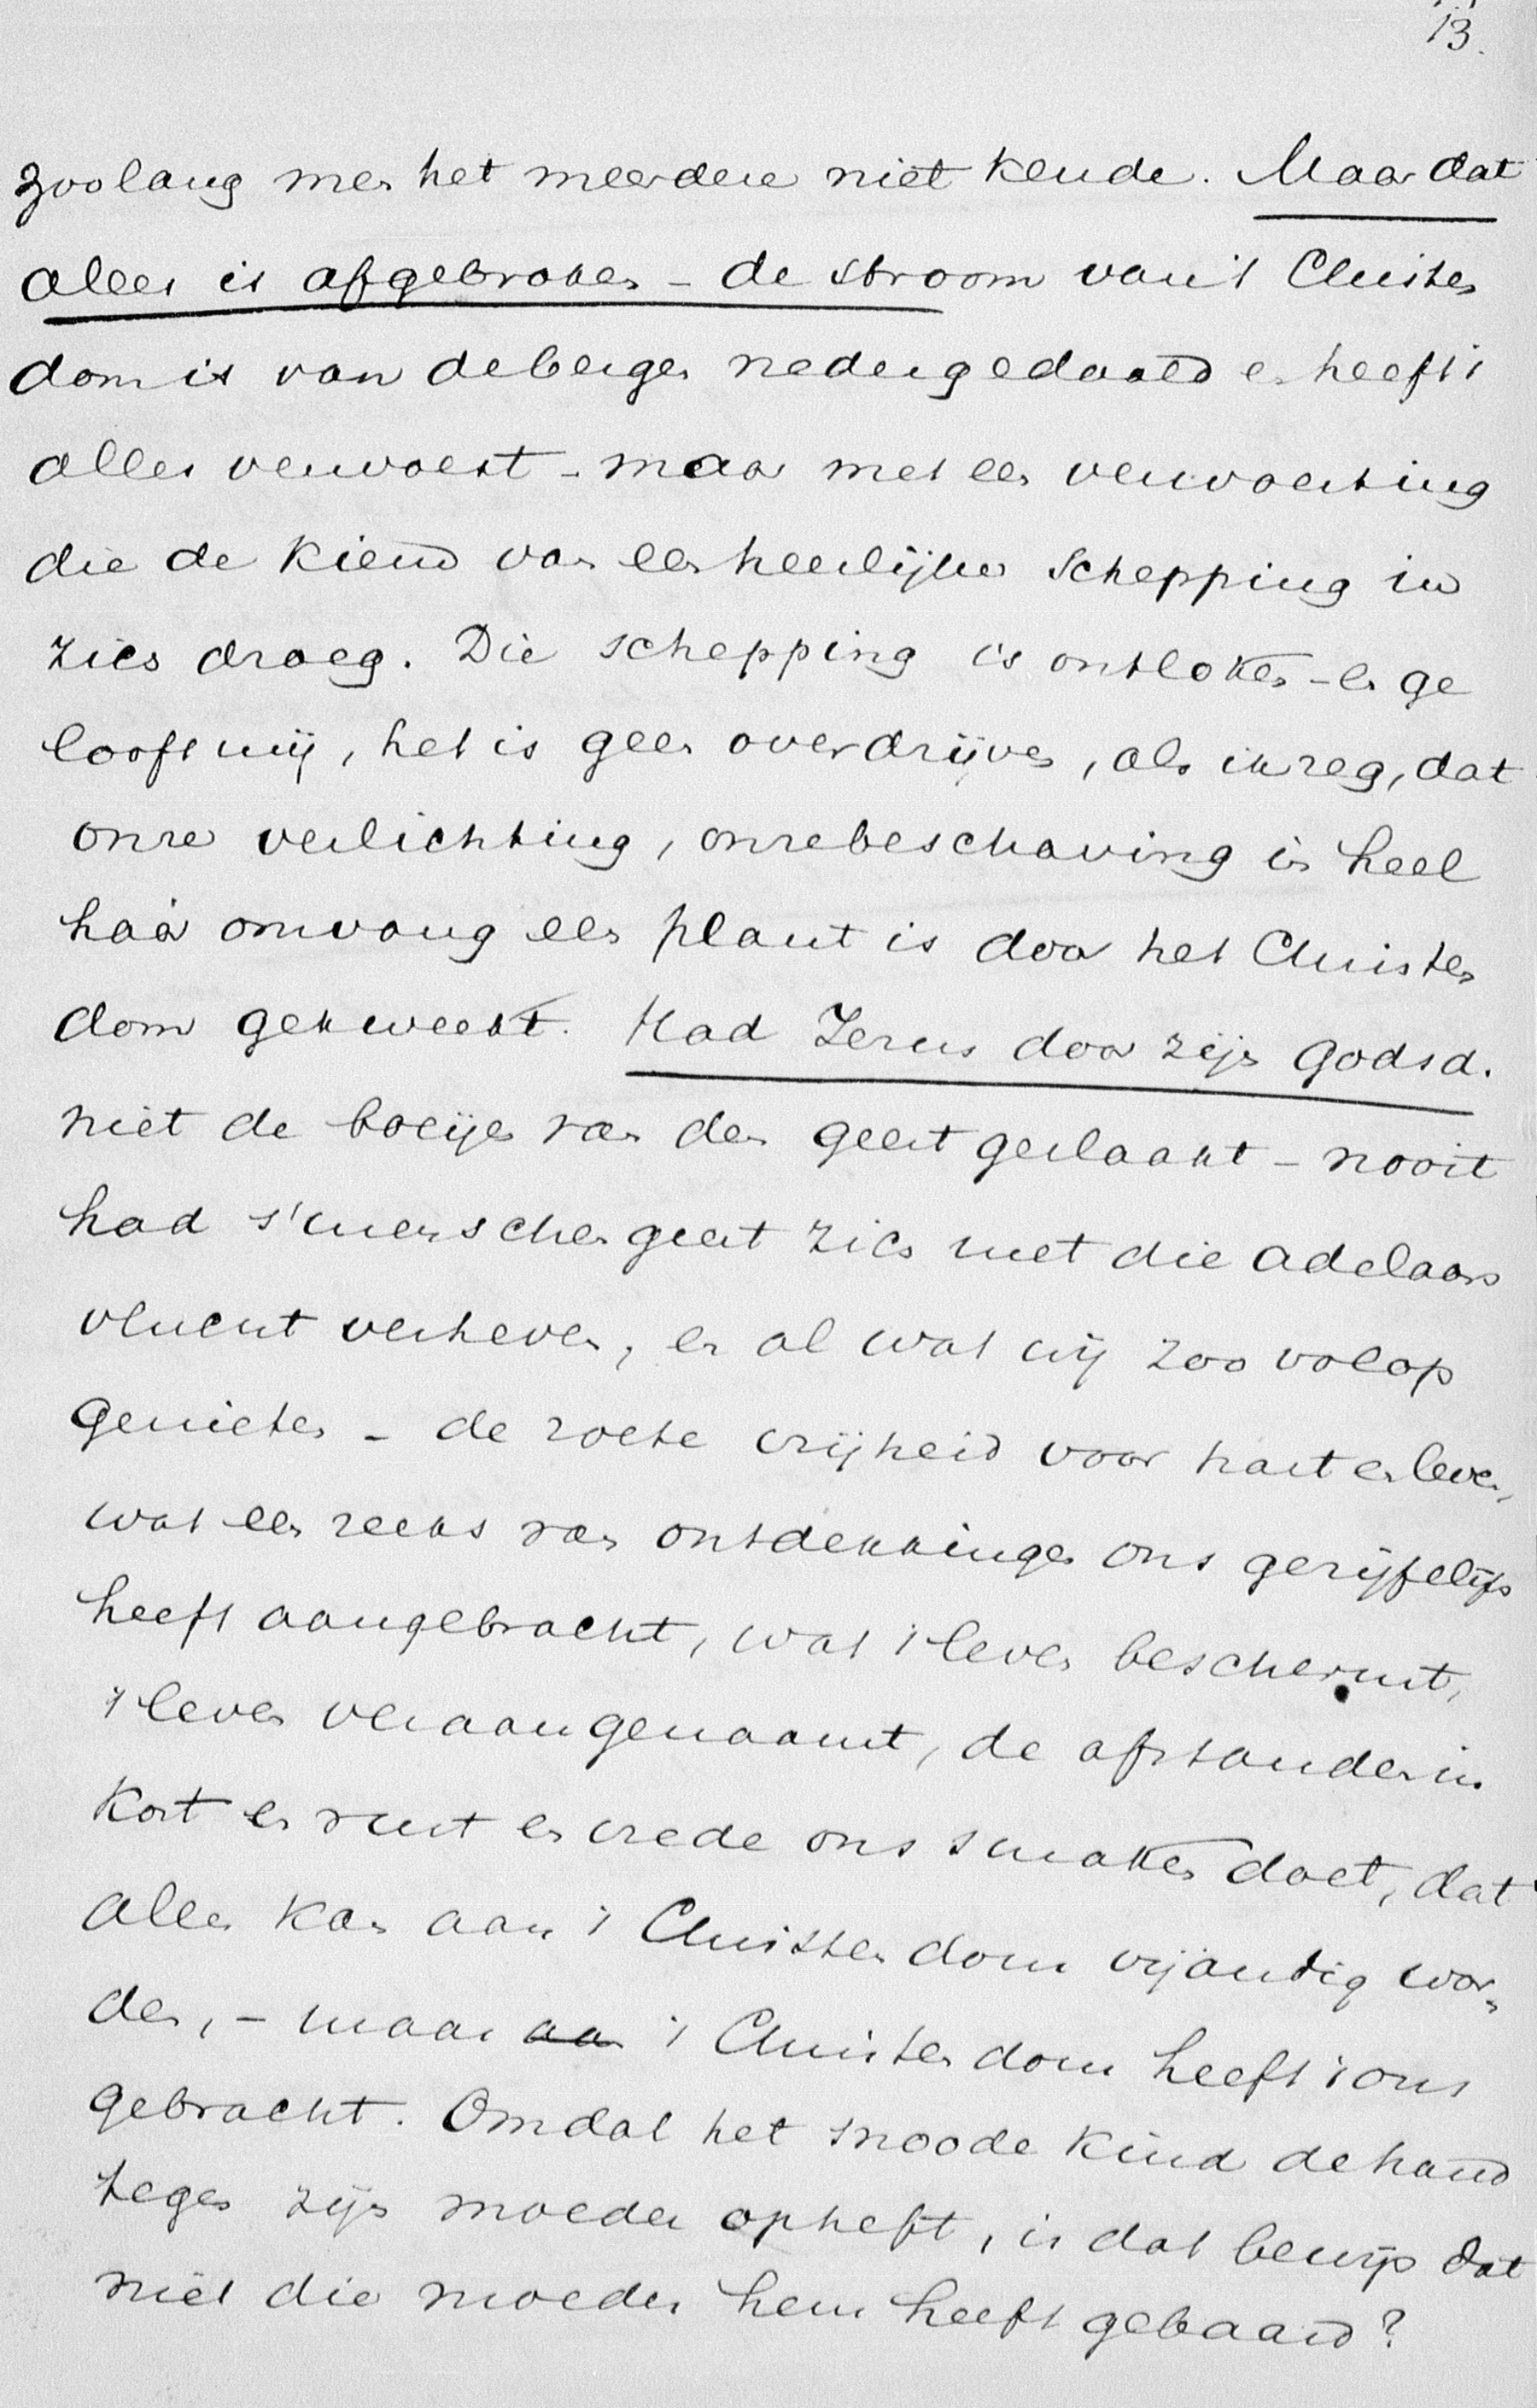 13.
zoolang men het meerdere niet kende. Maar dat
alles is afgebroken - de stroom van 't Christen
dom is van de bergen nedergedaald en heeft 't
alles verwoest - maar met een verwoesting
die de kiem van een heerlijke schepping in
zich droeg. Die schepping is ontloken - en ge
looft mij, het is geen overdrijven, als ik zeg, dat
onze verlichting, onze beschaving in heel
haar omvang een plant is door het Christen
dom gekweekt. Had Jezus door zijn Godsd.
niet de boeijen van den geest geslaakt - nooit
had s'menschen geest zich met die adelaars
vlucht verheven, en al wat wij zoo volop
genieten - de zoete vrijheid voor hart en leven,
wat een reeks van ontdekkingen ons gerijfelijks
heeft aangebracht, wat 't leven beschermt,
't leven veraangenaamt, de afstanden in
kort en rust en vrede ons smaken doet, dat
alles kan aan 't Christendom vijandig wor-
den, - maar aan 't Christendom heeft 't ons
gebracht. Omdat het snoode kind de hand
tegen zijn moeder opheft, is dat bewijs dat
niet die moeder hem heeft gebaard?